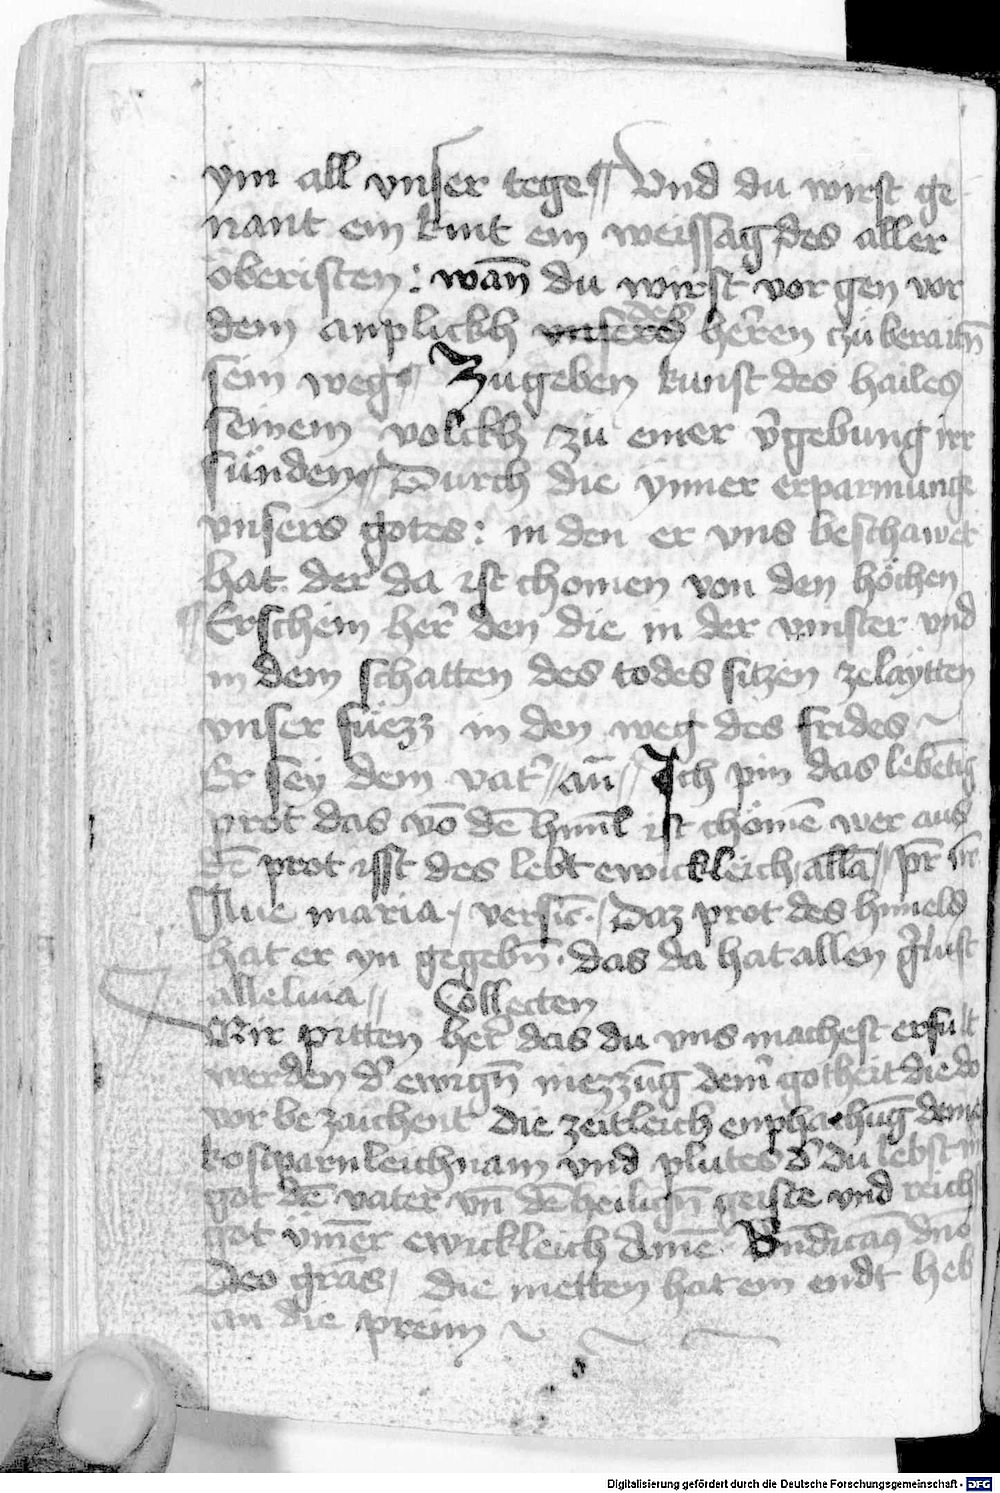 ym all vnser tege Vnd du wirst ge
nant ein kint ein weissag des aller
öberisten : wan̄ du wirst vor gen vor
dem anplickh vnsers des herren czü beraitn̄
sein weg Zu geben kunst des hailes
seinem volckh zü einer v̄gebung irr
sünden Durch die ynner erparmunge
vnsers gotes : in den er vns beschawet
hat der da ist chomen von den höchen
Erschein her̄ den die in der vinster vnd
in dem schatten des todes sitzen zelaytten
vnser füezz in den weg des frides
Er sey dem vat̄ an̄ Ich pin das lebētig
prot das vō dē himl̄ ist chömē wer aus
dē prot isst des lebt ewickleich allā pr̄
Aue maria versic̄ Daz prot des himels
hat er yn gegebn̄ das da hat allen glust
alleluia Collecten
Wir pitten her̄ das du vns machest erfult
werden d̄ ewign̄ niezzūg dein̄ gotheit die do
vor bezaichent die zeitleich enphachūg deine
kosparn leichnam vnd plutes d̄ du lebst m
got dē vater vn̄ dē heilign̄ geiste vnd reichs
got ym̄er ewickleich Amē Bn̄dicam9 dn̄o
Deo gr̄as die metten hat ein endt heb
an die preim
Digitalisierung gefördert durch die Deutsche Forschungsgemeinschaft - DFG